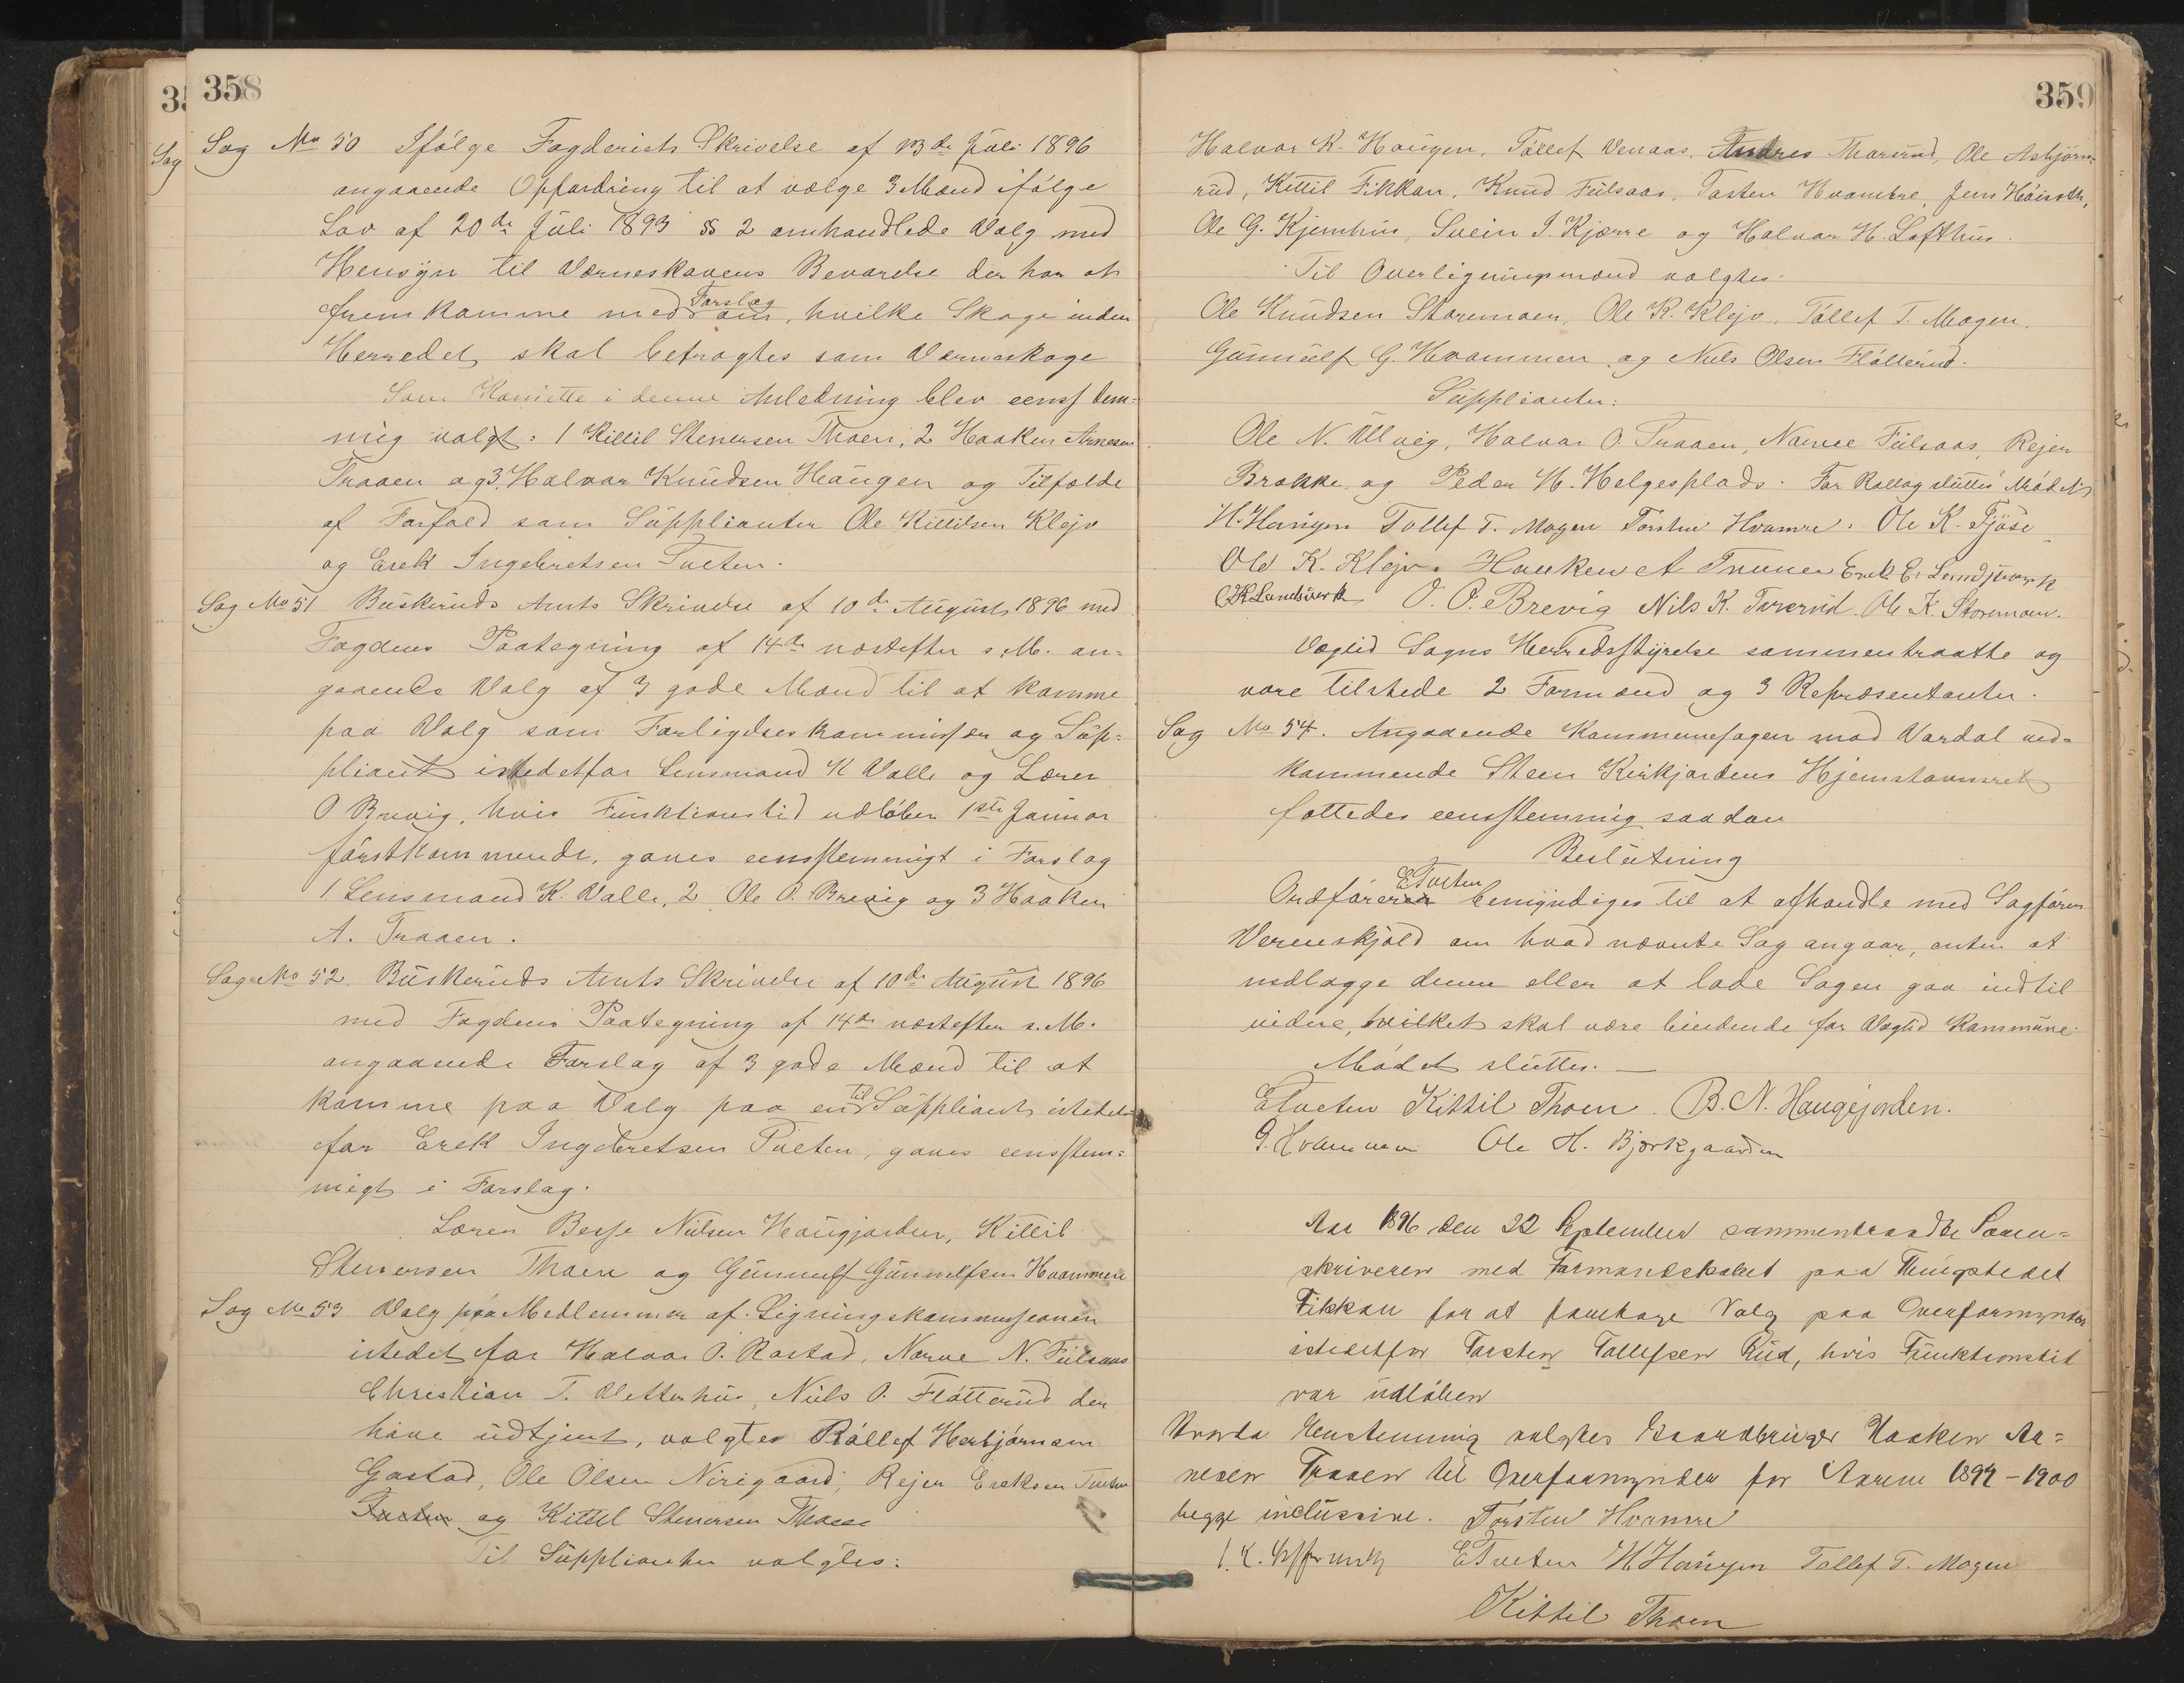 358
Sag No 50 Ifølge Fogderiets Skrivelse af 13de Juli 1896
angaaende Opfordring til at vælge 3 Mænd ifølge
Lov af 20de Juli 1893 § 2 omhandlede Valg med
Hensyn til Værneskovens Bevarelse der har at
fremkomme med Forslag om, hvilke Skoge inden
Herredet skal betragtes som Værneskoge
Som Komitte i denne Anledning blev eensstem=
mig valgt: 1 Kittil Stenersen Thoen, 2 Haaken Arnesen
Traaen og 3. Halvor Knudsen Haugen og Tilfælde
af Forfald som Supplianter Ole Kittilsen Klejv
og Erek Ingebretsen Tveten.
Sag No 51 Buskeruds Amts Skrivelse af 10de August 1896 med
Fogdens Paategning af 14de næstefter s. M. an=
gaaende Valg af 3 gode Mænd til at komme
paa Valg som Forligelseskommissær og Sup=
pliant istedetfor Lensmand K Valle og Lærer
O Brevig, hvis Funktionstid udløber 1ste Januar
førstkommende, gaves eensstemmigt i Forslag
1 Lensmand K. Valle, 2 Ole O. Brevig og 3 Haaken
A. Traaen.
Sag No 52. Buskeruds Amts Skrivelse af 10de August 1896
med Fogdens Paategning af 14de næstefter s. M.
angaaende Forslag af 3 gode Mænd til at
komme paa Valg paa en til Suppliant istedet
for Erek Ingebretsen Tveten, gaves eensstem=
migt i Forslag.
Lærer Besse Nilsen Haugjorden, Kittil
Stenersen Thoen og Gunnulf Gunnulfsen Hvammen
Sag No 53 Valg paa Medlemmer af Ligningskommissionen
istedet for Halvor O. Rastad, Narve N. Fulsaas
Christian T. Vetterhus, Niels O. Fløtterud der
have udtjent, valgtes Rollef Herbjørnsen
Gastad, Ole Olsen Nirigaard, Rejer Ereksen Tveten
Tveten og Kittil Stenersen Thoen
Til Supplianter valgtes:
359
Halvor K. Haugen, Tollef Venaas, Andres Thorsrud, Ole Asbjørn=
rud, Kittil Fikkan, Knud Fulsaas, Tosten Hvambre, Jens
Ole G. Kjemhus, Svein S. Kjærre og Halvor H. Lofthus.
Til Overligningsmænd valgtes:
Ole Knudsen Storemoen, Ole K. Klejv, Tollef T. Mogen.
Gunnulf G. Hvammen og Niels Olsen Fløtterud.
Supplianter:
Ole N. Ulvig, Halvor O. Traaen, Narve Fulsaas, Rejer
Brokke og Peder H. Helgesplads. For Rollag sluttes Mødet
H. Haugen Tollef T. Mogen Torsten Hvamre. Ole K. Fjøse
Ole K. Klejv. Haaken A Traaen Erek E. Landsverk
Landsverk O. O. Brevig Nils K. Traerud. Ole K. Storemoen.
Væglid Sogns Herredsstyrelse sammentraatte og
vare tilstede 2 Formænd og 3 Repræsentanter.
Sag No 54. Angaaende Kommunesagen mod Vardal ved=
kommende Steen Kirkjordens Hjemstavnsret
fattedes eensstemmig saadan
Beslutning
Ordføreren E Tveten bemyndiges til at afhandle med Sagfører
Verenskjold om hvad nævnte Sag angaar, enten at
nedlægge denne eller at lade Sagen gaa indtil
videre, hvilket skal være bindende for Væglid Kommune.
Mødet sluttes. —
E Tveten Kittil Thoen. B. N. Haugejorden.
G. Hvammen Ole H. Bjørkgaarden
Aar 1896 den 22 September sammentraadte Soren=
skriveren med Formandskabet paa Thingstedet
Fikkan for at foretage Valg paa Overformynder
istedetfor Torsten Tollefsen Rud, hvis Funktionstid
var udløben
Ved Eenstemmig valgtes Gaardbruger Haaken Ar=
nesen Traaen til Overformynder for Aarene 1897–1900
begge inclusive. Torsten Hvamre
E Tveten H. Haugen Tollef T. Mogen
Kittil Thoen